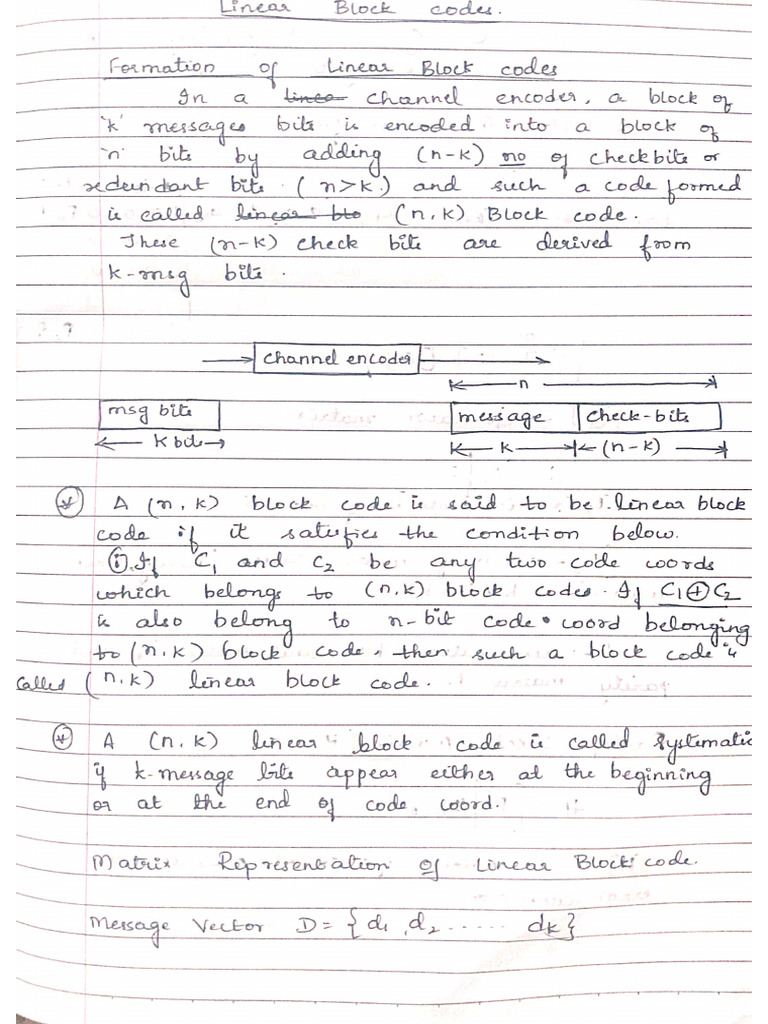 Linear Block codes.
Formation of Linear Block codes
In a linea channel encoder, a block of
'k' messages bits is encoded into a block of
'n' bits by adding (n-k) no of checkbits or
redundant bits (n>k) and such a code formed
is called linear blo (n,k) Block code.
These (n-k) check bits are derived from
k-msg bits.
channel encoder
n
msg bits message check-bits
k bits k (n-k)
* A (n,k) block code is said to be linear block
code if it satisfies the condition below.
① If C1 and C2 be any two code words
which belongs to (n,k) block codes. If C1⊕C2
is also belong to n-bit code word belonging
to (n,k) block code, then such a block code is
called (n,k) linear block code.
* A (n,k) linear block code is called systematic
if k-message bits appear either at the beginning
or at the end of code word.
Matrix Representation of Linear Block code.
Message Vector D = {d1, d2 ...... dk}